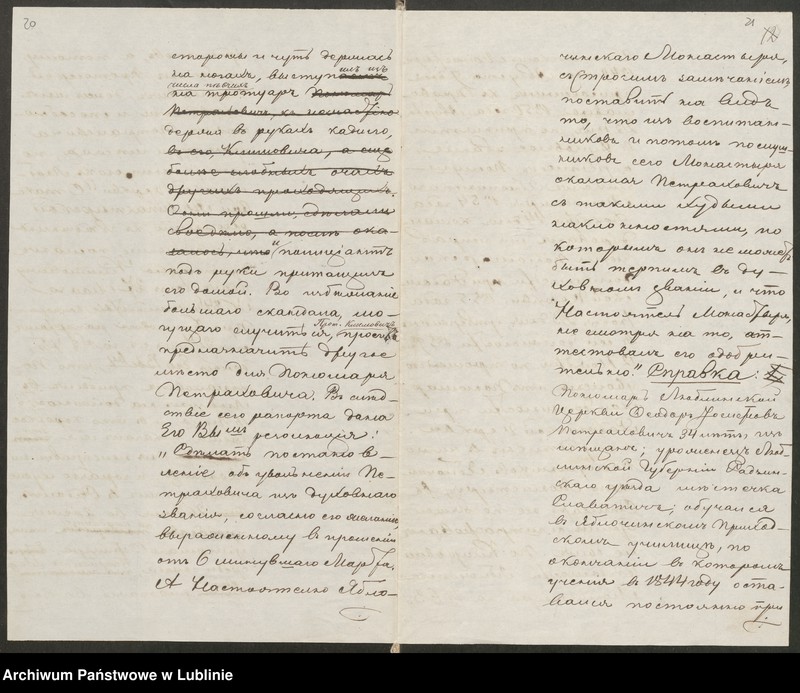 20
стороны и чуть держась
на ногахъ, выступ
на тротуаръ
Петраховича, къ
держа въ рукахъ кадило,
въ его Климовича, а еще
другихъ проходящихъ.
Они прошли,
сводно, а послѣ ока-
залось, что "
подъ руки притащилъ
его домой. Во избѣжаніе
большаго скандала, мо-
гущаго случиться, Прот. Климовичъ проситъ
предназначить другое
мѣсто для Пономаря
Петраховича. Въ слѣд-
ствіе сего рапорта дана
Его Вымъ резолюція:
„Сдѣлать постанов-
леніе объ увольненіи Пе-
траховича изъ духовнаго
званія, согласно его желанію,
выраженному въ прошеніи
отъ 6 минувшаго Марта.
А Настоятелю Ябло-
21
чинскаго Монастыря,
съ строгимъ замѣчаніемъ
поставить на видъ
то, что изъ воспитан-
никовъ и потомъ послуш-
никовъ сего Монастыря
оказался Петраховичъ
съ такими худыми
наклонностями, по
которымъ онъ не можетъ
быть терпимъ въ ду-
ховномъ званіи, и что
Настоятель Монастыря,
не смотря на то, ат-
тестовалъ его одобри-
тельно." Справка:
Пономарь Люблинской
церкви Ѳеодоръ Іосифовъ
Петраховичъ 34 лѣтъ, изъ
мѣщанъ; уроженецъ Люб-
линской Губерніи Радзин-
скаго уѣзда мѣстечка
Славатичъ; обучался
въ Яблочинскомъ Приход-
скомъ училищѣ, по
окончаніи въ которомъ
ученія въ 1844 году оста-
вался постоянно при
Archiwum Państwowe w Lublinie